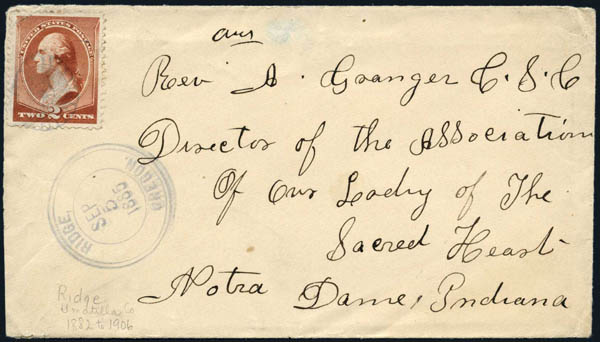 UNITED STATES POSTAGE
TWO 2 CENTS
ans
Rev A. Granger C. S. C
Director of the Association
Of Our Lady of The
Sacred Heart
Notra Dame, Indiana
RIDGE,
SEP
5
1885
OREGON.
Ridge
Umatilla Co
1882 to 1906